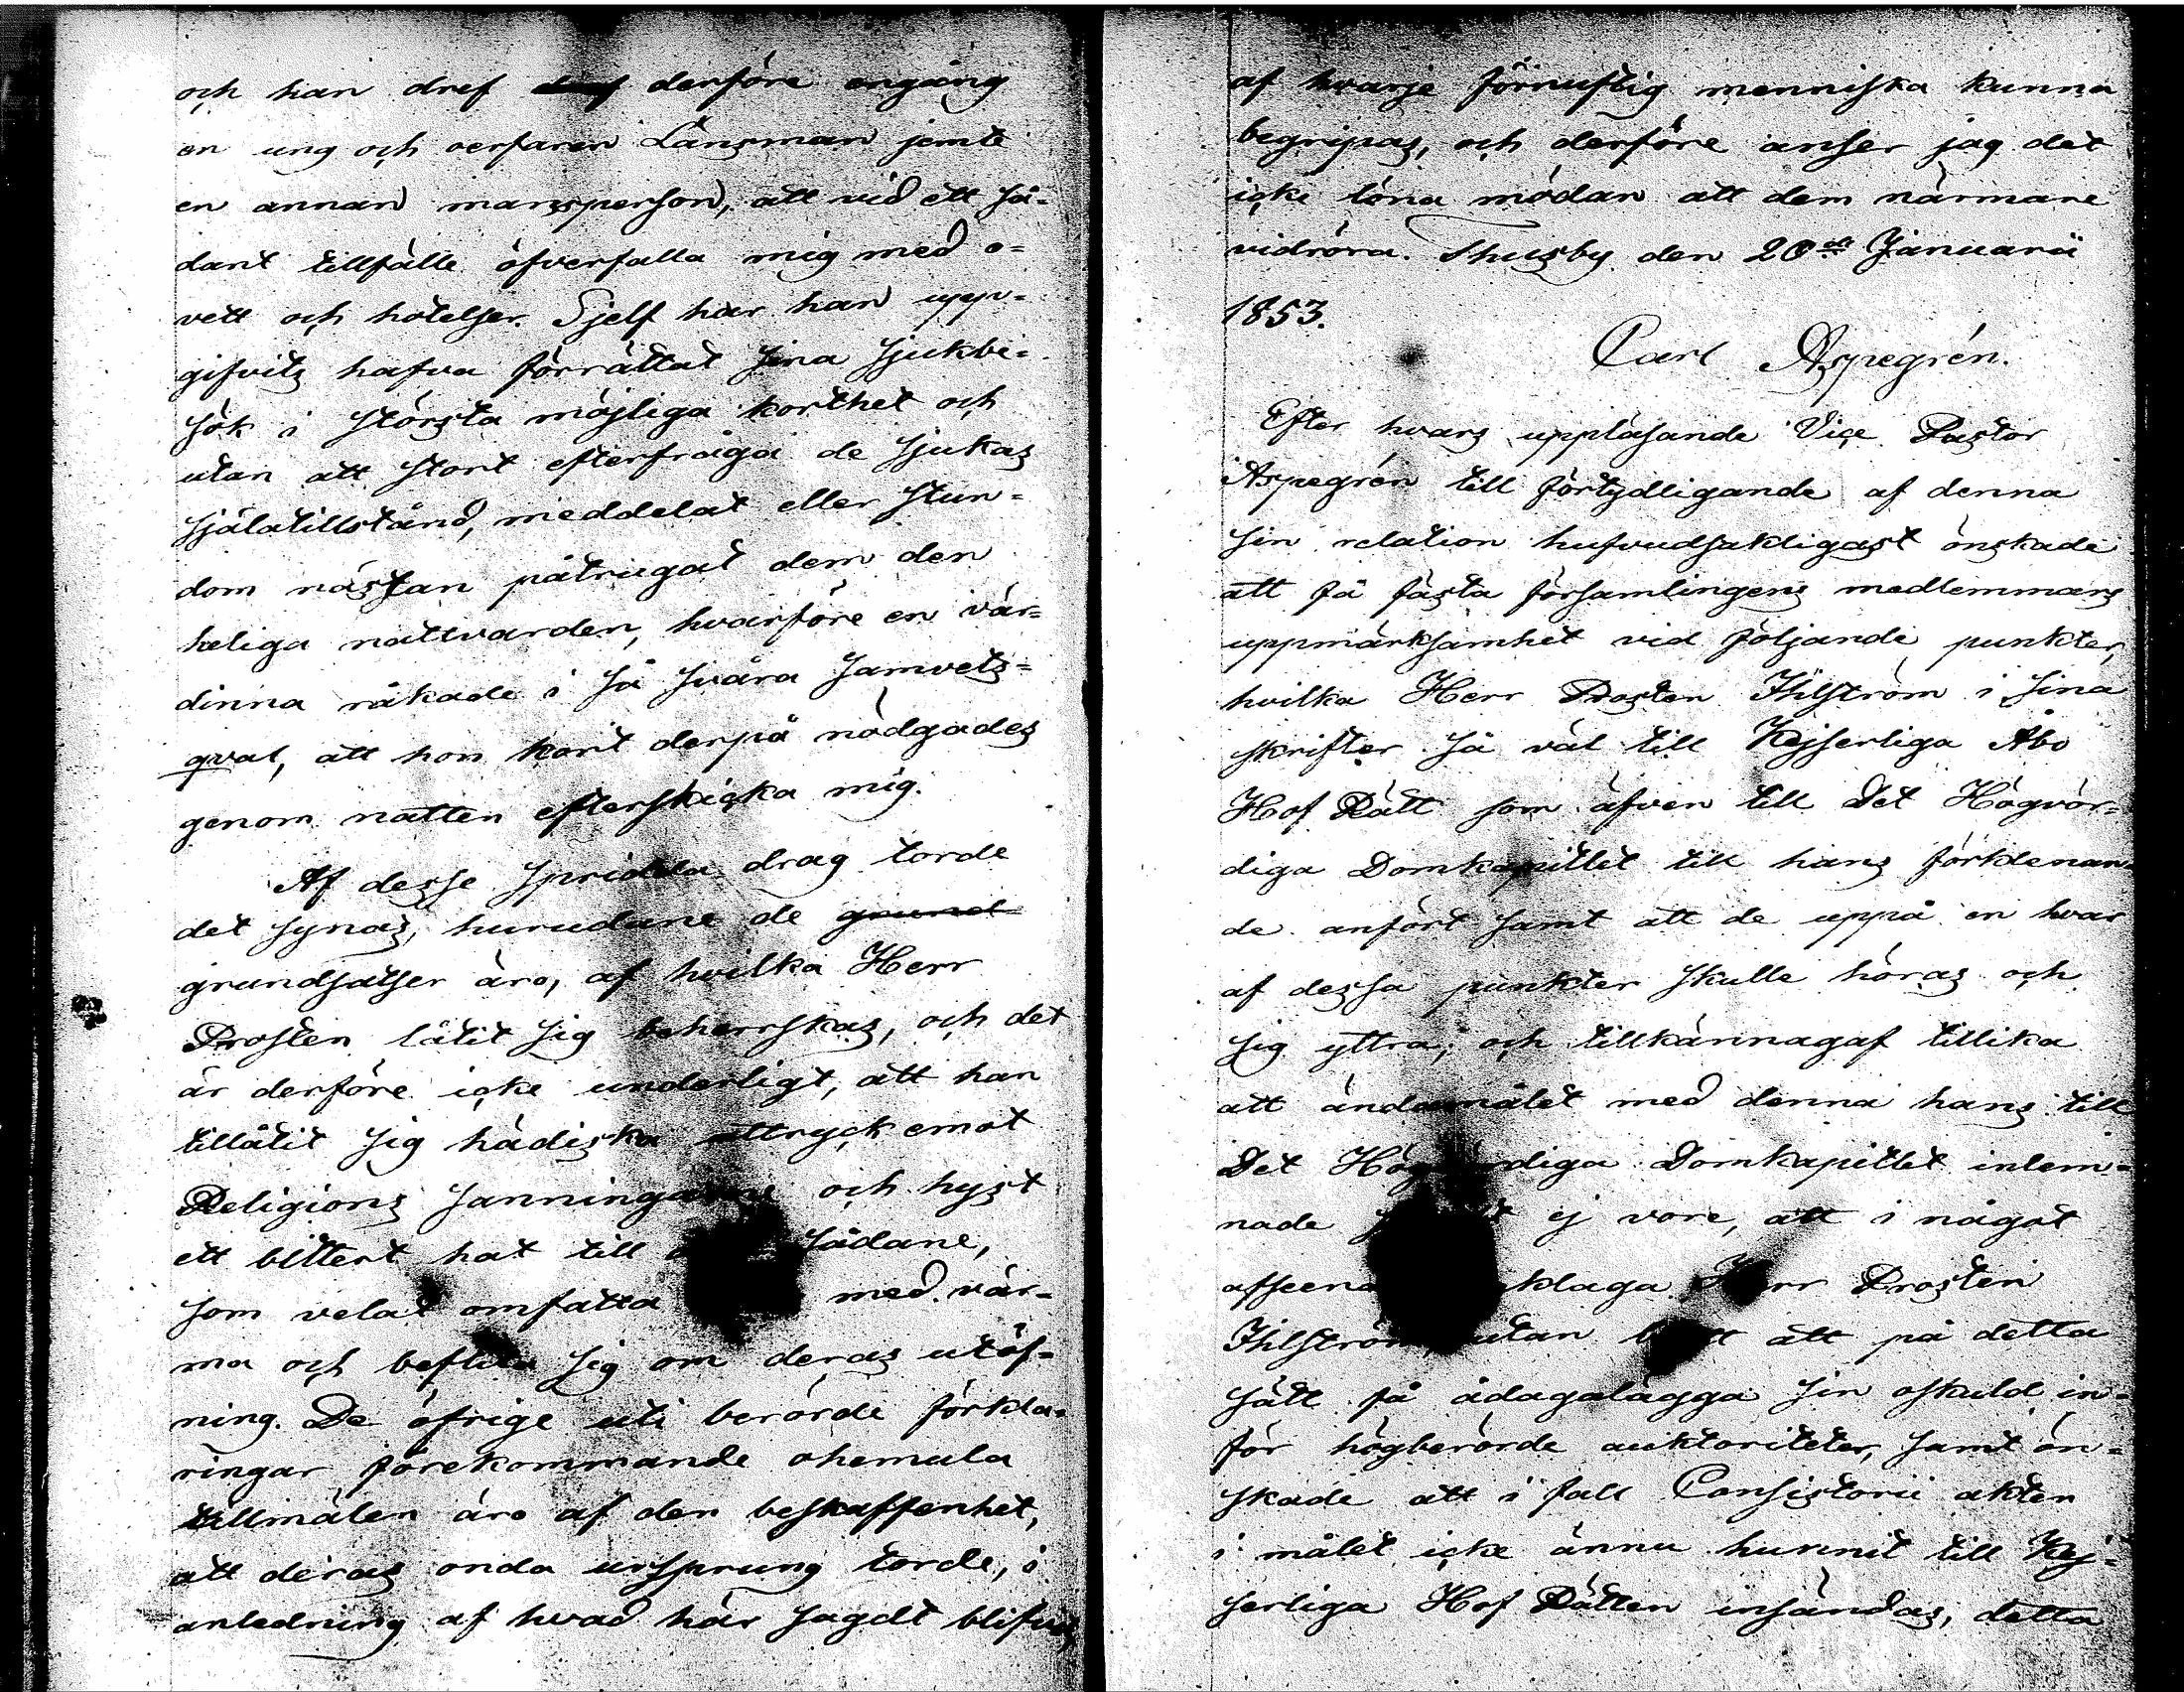 och han dref derföre engång
en ung och oerfaren Länsman jemte
en annan mansperson, att vid ett så-
dant tillfälle öfverfalla mig med o-
vett och hotelser. Sjelf har han upp-
gifvits hafva förrättat sina sjukbe-
sök i största möjliga korthet och
utan att stort efterfråga de sjukas
själatillstånd, meddelat eller stun-
dom nästan påtrugat dem den
heliga nattvarden, hvarföre en vär-
dinna råkade i så svåra samvets-
qval, att hon kort derpå nödgades
genom natten efterskicka mig.
Af desse spridda drag torde
det synas, hurudane de grund
grundsatser äro, af hvilka Herr
Prosten låtit sig beherrskas, och det
är derföre icke underligt, att han
tillåtit sig hädiska uttryck emot
Religions sanningarne och hyst
ett bittert hat till sådane,
som velat omfatta med vär-
ma och beflita sig om deras utöf-
ning. De öfrige uti berörde förkla-
ringar förekommande ohemula
tillmälen äro af den beskaffenhet,
att deras onda ursprung torde, i
anledning af hvad här sagdt blifvit,
af hvarje förnuftig menniska kunna
begripas, och derföre anser jag det
icke löna mödan att dem närmare
vidröra. Thusby den 20de Januarii
1853.
Carl Aspegrén.
Efter hvars uppläsande Vice Pastor
Aspegrén till förtydligande af denna
sin relation hufvudsakligast önskade
att få fästa församlingens medlemmars
uppmärksamhet vid följande punkter,
hvilka Herr Prosten Ihlström i sina
skrifter så väl till Kejserliga Åbo
Hof Rätt som äfven till Det Högvör-
diga Domkapitlet till hans förklenan-
de anfört samt att de uppå en hvar
af dessa punkter skulle höras och
sig yttra; och tillkännagaf tillika
att ändamålet med denna hans till
Det Högvördiga Domkapitlet inlem-
nade ej vore, att i något
afseende klaga Herr Prosten
Ihlström, utan blott att på detta
sätt få ådagalägga sin oskuld in-
för högberörde auktoriteter, samt ön-
skade att i fall Consistorii akten
i målet icke ännu hunnit till Kej-
serliga Hof Rätten insändas, detta